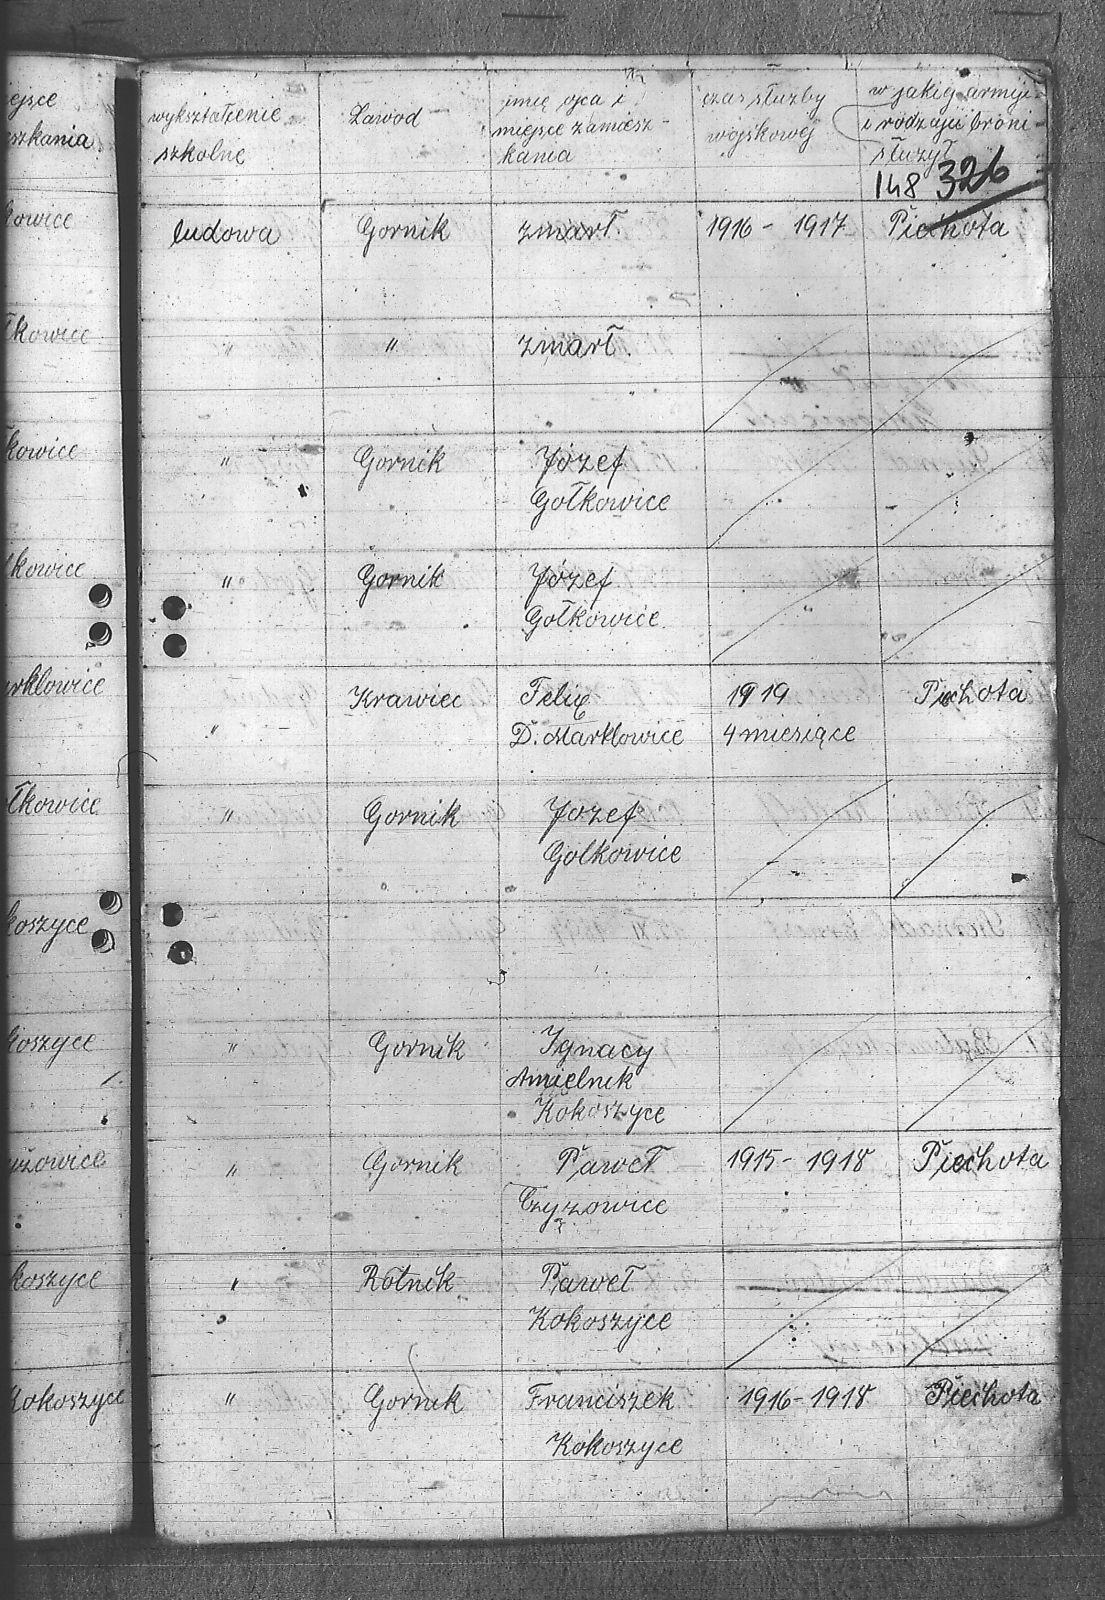 ejsce
szkania
wykształcenie
szkolne
Zawod
imię ojca i
miejsce zamiesz-
kania
czas służby
wojskowej
w jakiej armji
i rodzaju broni
służył
148 326
kowice
ludowa Gornik zmarł. 1916 - 1917 Piechota
łkowice
" " zmarł.
kowice
" Gornik Józef
Gołkowice
łkowice
" Gornik Józef
Gołkowice
arklowice
" Krawiec Felix 1919 Piechota
D. Marklowice 4 miesiące
łkowice
" Gornik Jozef
Golkowice
koszyce
koszyce
" Gornik Ignacy
Kokoszyce
yżowice
" Gornik Paweł 1915 - 1918 Piechota
Czyzowice
koszyce
" Rolnik Paweł
Kokoszyce
Kokoszyce
" Gornik Franciszek 1916 - 1918 Piechota
Kokoszyce